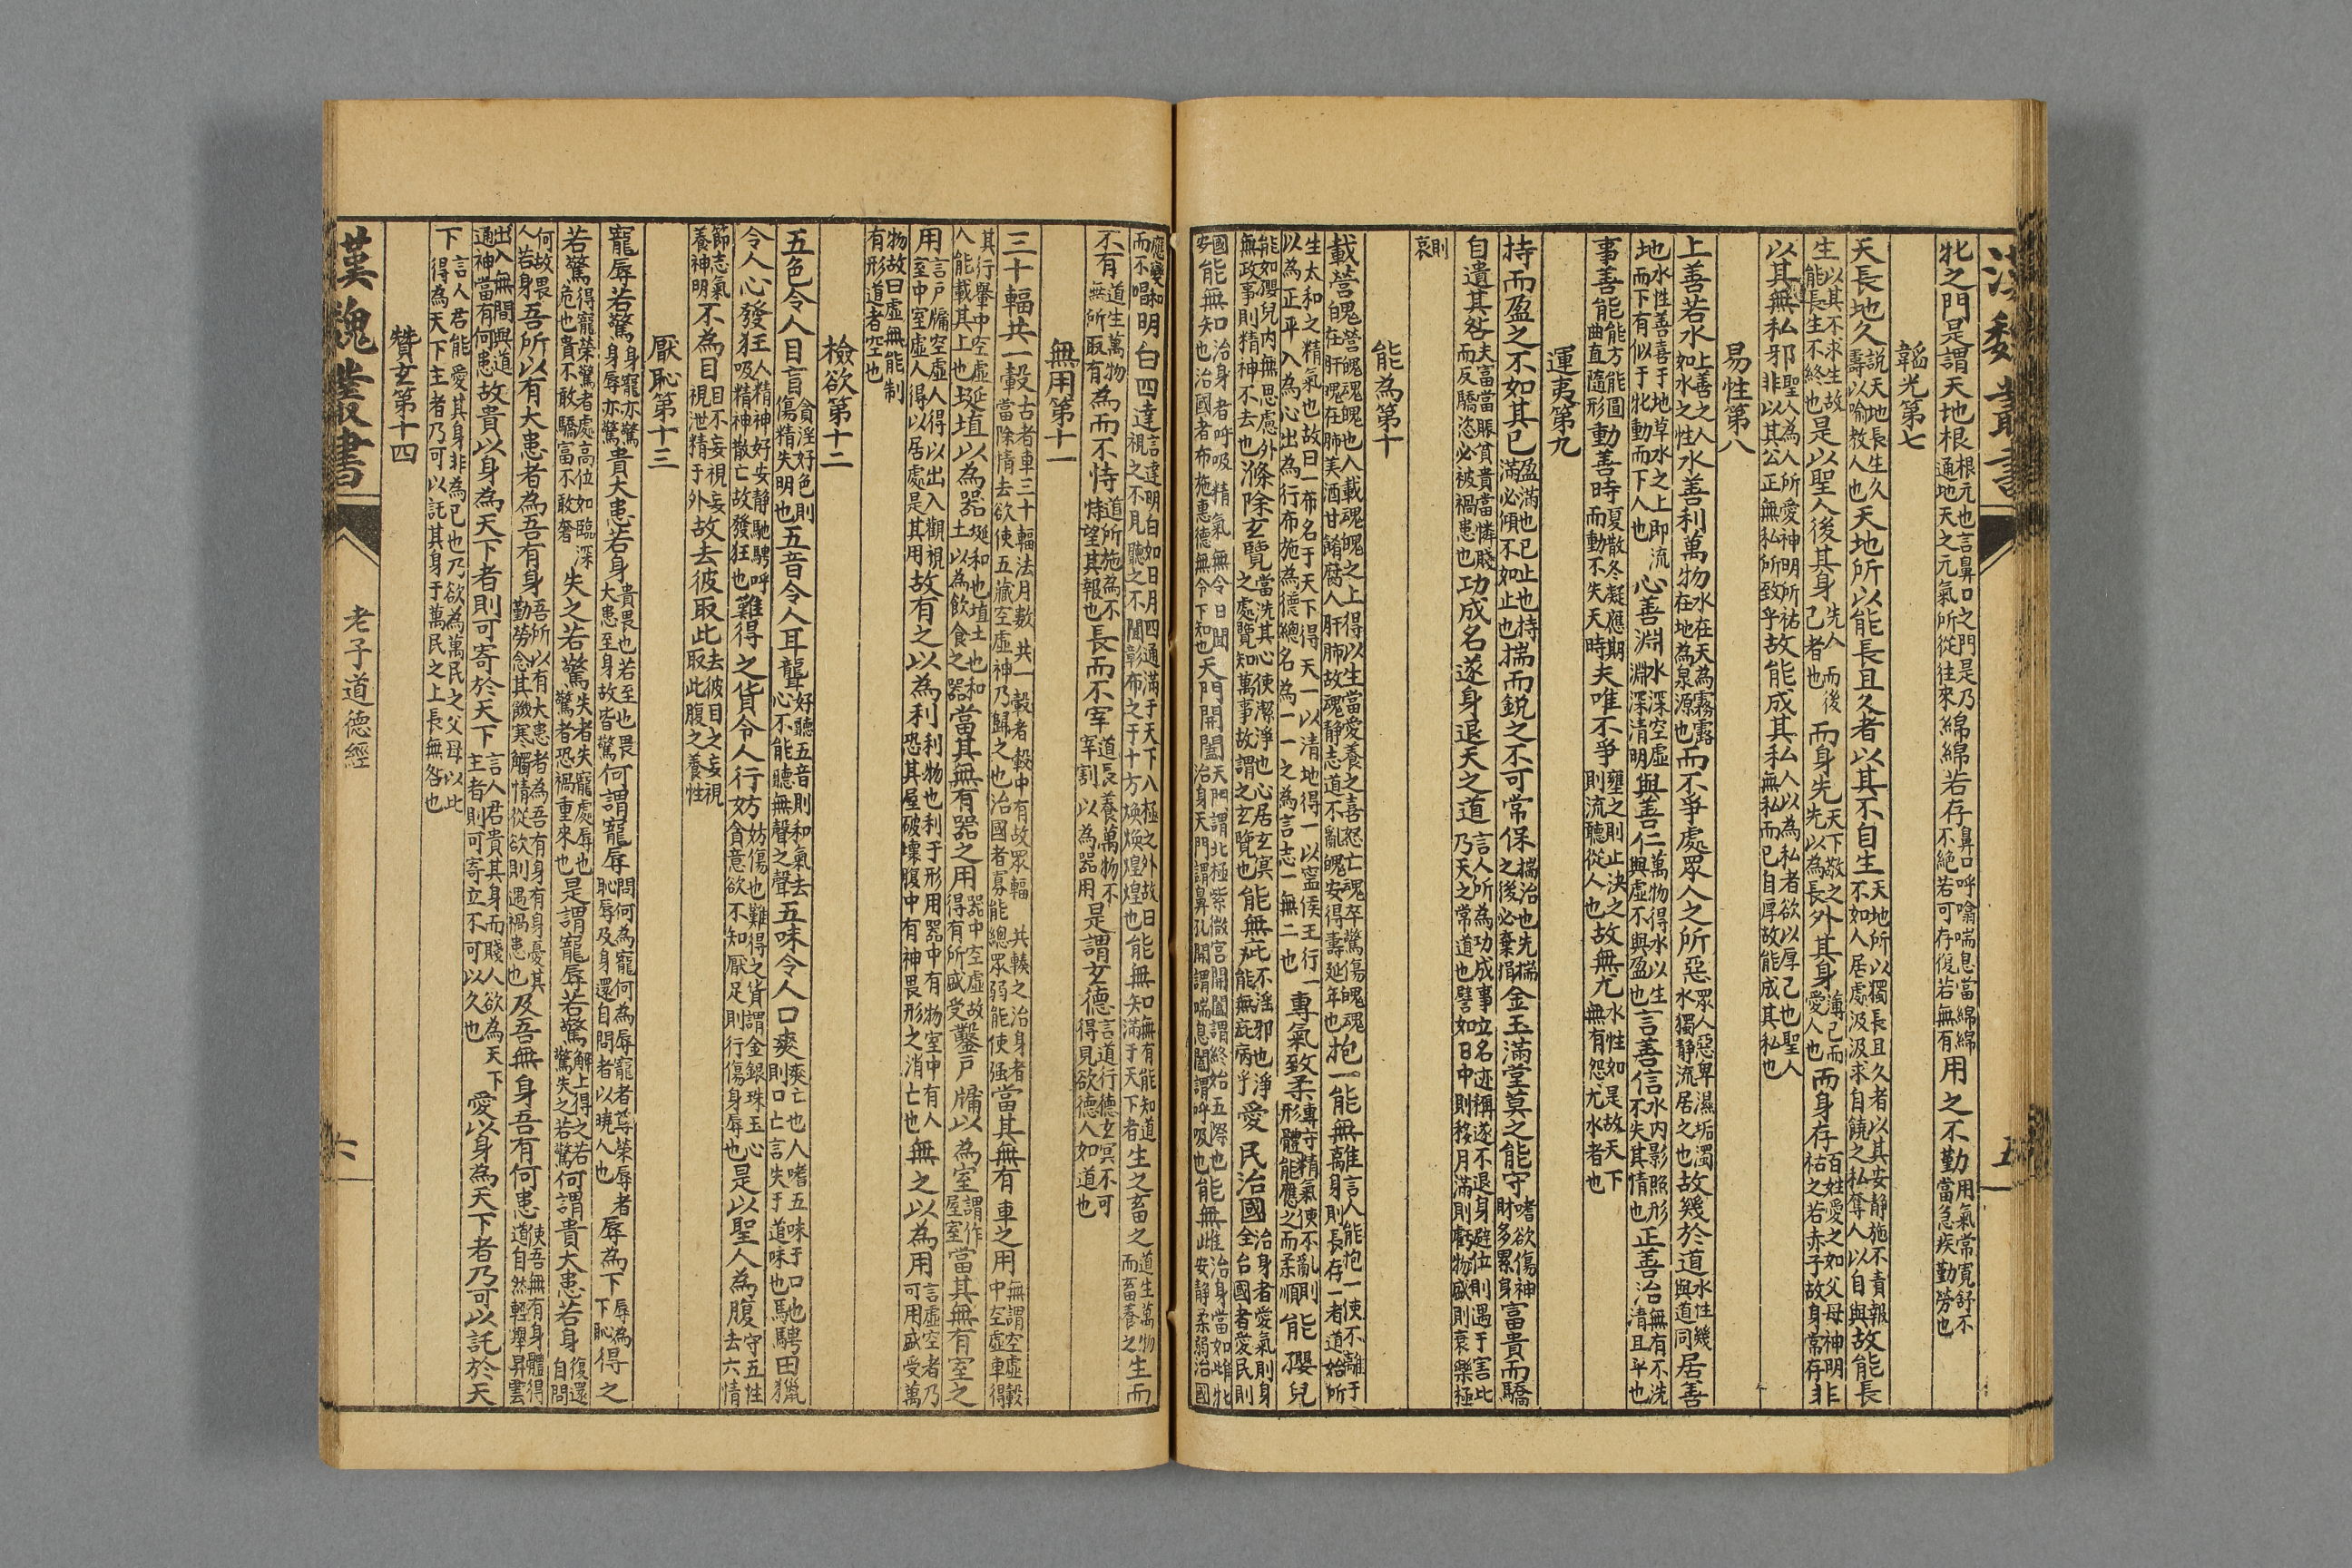 漢魏叢書
五
牝之門是謂天地根根元也言鼻口之門是乃通地天之元氣所從往來綿綿若存鼻口呼噏喘息當綿綿不絕若可存復若無有用之不勤用氣常寬舒不當急疾勤勞也
韜光第七
天長地久說天地長生久壽以喻教人也天地所以能長且久者以其不自生天地所以獨長且久者以其安靜施不責報不如人居處汲汲求自饒之私奪人以自與故能長
生以其不求生故能長生不終也是以聖人後其身先人而後己者也而身先天下敬之先以為長外其身薄己而愛人也而身存百姓愛之如父母神明祐之若赤子故身常存非
以其無私邪聖人為人所愛神明所祐非以其公正無私所致乎故能成其私人以為私者欲以厚己也聖人無私而已自厚故能成其私也
易性第八
上善若水上善之人如水之性水善利萬物水在天為霧露在地為泉源也而不爭處眾人之所惡眾人惡卑濕垢濁水獨靜流居之也故幾於道水性幾與道同居善
地水性善喜于地草水之上即流而下有似于牝動而下人也心善淵水深空虛淵深清明與善仁萬物得水以生與虛不與盈也言善信水內影照形不失其情也正善治無有不洗清且平也
事善能能方能圓曲直隨形動善時夏散冬凝應期而動不失天時夫唯不爭壅之則止決之則流聽從人也故無尤水性如是故天下無有怨尤水者也
運夷第九
持而盈之不如其已盈滿也已止也持滿必傾不如止也揣而銳之不可常保揣治也先揣之後必棄捐金玉滿堂莫之能守嗜欲傷神財多累身富貴而驕
自遺其咎夫富當賑貧貴當憐賤而反驕恣必被禍患也功成名遂身退天之道言人所為功成事立名迹稱遂不退身避位則遇于害此乃天之常道也譬如日中則移月滿則虧物盛則衰樂極
則哀
能為第十
載營魄營魄魂魄也人載魂魄之上得以生當愛養之喜怒亡魂卒驚傷魄魂在肝魄在肺美酒甘餚腐人肝肺故魂靜志道不亂魄安得壽延年也抱一能無離言人能抱一使不離于身則長存一者道始所
生太和之精氣也故曰一布名于天下得天一以清地得一以寧侯王行一以為正平入為心出為行布施為德總名為一一之為言志一無二也專氣致柔專守精氣使不亂則形體能應之而柔順能嬰兒
能如嬰兒內無思慮外無政事則精神不去也滌除玄覽當洗其心使潔淨也心居玄㝠之處覽知萬事故謂之玄覽也能無疵不淫邪也淨能無疵病乎愛民治國治身者愛氣則身全台國者愛民則
國安能無知治身者呼吸精氣無令日聞也治國者布施惠德無令下知也天門開闔天門謂北極紫微宮開闔謂終始五際也治身天門謂鼻孔開謂喘息闔謂呼吸也能無雌治身當如雌牝安靜柔弱治國
應變和而不唱明白四達言達明白如日月四通滿于天下八極之外故曰視之不見聽之不聞彰布之于十方煥煥煌煌也能無知無有能知道滿于天下者生之畜之道生萬物而畜養之生而
不有道生萬物無所取有為而不恃道所施為不恃望其報也長而不宰道長養萬物不宰割以為器用是謂玄德言道行德玄㝠不可得見欲德人如道也
無用第十一
三十輻共一轂古者車三十輻法月數共一轂者轂中有故眾輻共輳之治身者當除情去欲使五藏空虛神乃歸之也治國者寡能總眾弱能使强當其無有車之用無謂空虛轂中空虛車得
其行轝中空虛人能載其上也埏埴以為器埏和也埴土也和土以為飲食之器當其無有器之用器中空虛故得有所盛受鑿戶牖以為室謂作屋室當其無有室之
用言戶牖空虛人得以出入觀視室中室虛人得以居處是其用故有之以為利利物也利于形用器中有物室中有人恐其屋破壞腹中有神畏形之消亡也無之以為用言虛空者乃可用盛受萬
物故曰虛無能制有形道者空也
檢欲第十二
五色令人目盲貪淫好色則傷精失明也五音令人耳聾好聽五音則和氣去心不能聽無聲之聲五味令人口爽爽亡也人嗜五味于口則口亡言失于道味也馳騁田獵
令人心發狂人精神好安靜馳騁呼吸精神散亡故發狂也難得之貨令人行妨妨傷也難得之貨謂金銀珠玉心貪意欲不知厭足則行傷身辱也是以聖人為腹守五性去六情
節志氣養神明不為目目不妄視妄視泄精于外故去彼取此去彼目之妄視取此腹之養性
厭恥第十三
寵辱若驚身寵亦驚身辱亦驚貴大患若身貴畏也若至也畏大患至身故皆驚何謂寵辱問何為寵何為辱寵者尊榮辱者恥辱及身還自問者以曉人也辱為下辱為下恥得之
若驚得寵榮驚者處高位如臨深危也貴不敢驕富不敢奢失之若驚失者失寵處辱也驚者恐禍重來也是謂寵辱若驚解上得之若驚失之若驚何謂貴大患若身復還自問
何故畏人若身吾所以有大患者為吾有身吾所以有大患者為吾有身有身憂其勤勞念其饑寒觸情從欲則遇禍患也及吾無身吾有何患使吾無有身體得道自然輕舉昇雲
出入無間與道通神當有何患故貴以身為天下者則可寄於天下言人君貴其身而賤人欲為天下主者則可寄立不可以久也愛以身為天下者乃可以託於天
下言人君能愛其身非為己也乃欲為萬民之父母以此得為天下主者乃可以託其身于萬民之上長無咎也
贊玄第十四
漢魏叢書
老子道德經
六